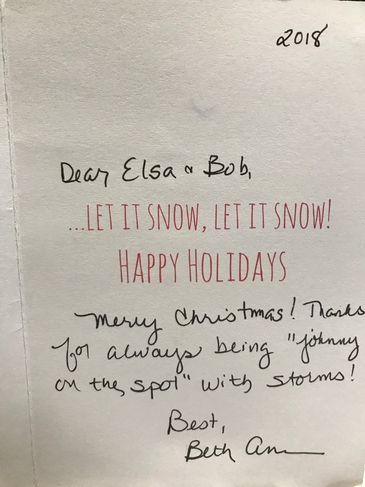 2018
Dear Elsa & Bob,
...LET IT SNOW, LET IT SNOW!
HAPPY HOLIDAYS
Merry Christmas! Thanks
for always being "johnny
on the spot" with storms!
Best,
Beth Ann